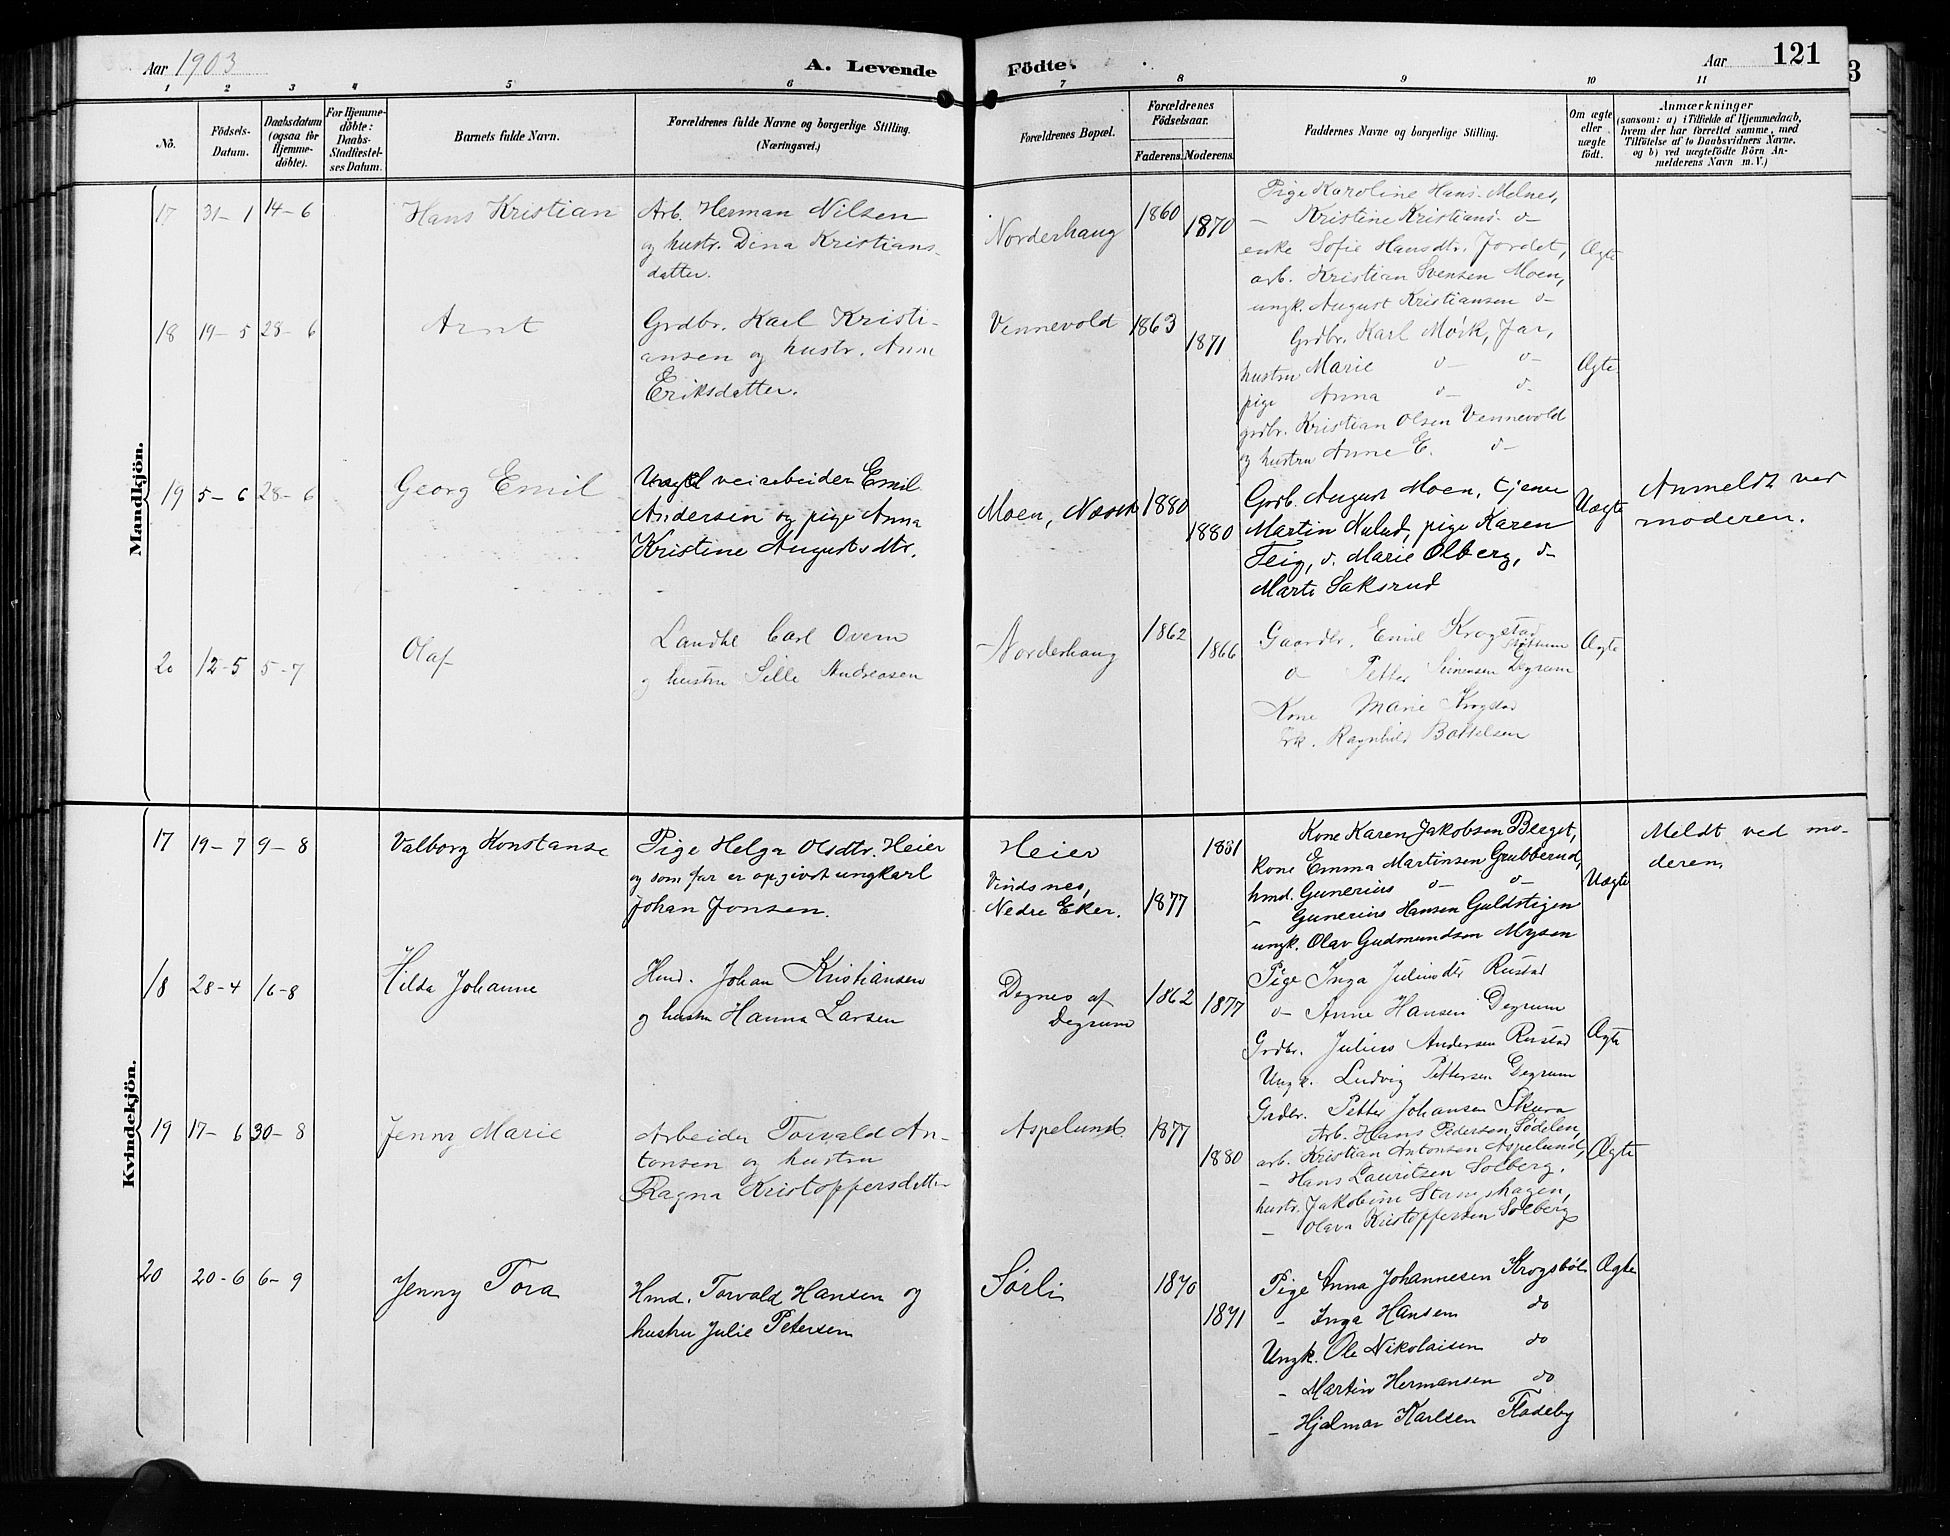 Aar 1903
A. Levende
Födte.
Aar
121
3
1 2 3 4 5 6 7 8 9 10 11
Nö.
Födsels-
Datum.
Daabsdatum
(ogsaa for
Hjemme-
döbte).
For Hjemme-
döbte:
Daabs-
Stadfæstel-
ses Datum.
Barnets fulde Navn.
Forældrenes fulde Navne og borgerlige Stilling.
(Næringsvei.)
Forældrenes Bopæl.
Forældrenes
Födselsaar.
Faderens. Moderens.
Faddernes Navne og borgerlige Stilling.
Om ægte
eller
uægte
födt.
Anmærkninger
(saasom: a) i Tilfælde af Hjemmedaab,
hvem der har forrettet samme, med
Tilföielse af to Daabsvidners Navne,
og b) ved uægtefödte Börn An-
melderens Navn m. V.)
Mandkjön.
17 31-1 14-6
Hans Kristian
Arb. Herman Nilsen
og hustr. Dina Kristians-
datter.
Norderhaug
1860
1870
Pige Karoline Hans. Melnes,
- Kristine Kristians- o-
enke Sofie Hansdtr. Jordet,
arb. Kristian Svensen Moen,
ungk. August Kristiansen o-
Ægte
18 19-5 28-6
Arnt
Grdbr. Karl Kristi-
ansen og hustr. Anne
Eriksdatter.
Vennevold
1863
1871
Grdbr. Karl Mørk, Jar,
hustru Marie o- o-
pige Anna o- o-
grdbr. Kristian Olsen Vennevold
og hustru Anne E. o-
Ægte
19 5-6 28-6
Georg Emil
Ungkl veiarbeider Emil
Andersen og pige Anna
Kristine Augustsdtr.
Moen, Næsset
1880
1880
Grdb. August Moen, tjener
Martin Nulud, pige Karen
Teig, o. Marie Olberg, o-
Marte Saksrud
Uægte
Anmeldt ved
moderen.
20 12-5 5-7
Olaf
Landhl Carl Overn
og hustru Sille Andreasen
Norderhaug
1862
1866
Gaardbr. Emil Krogstad
o- Petter Simensen Degrum
Kone Marie Krogstad
Frk. Ragnhild Bottelsen
Ægte
Kvindekjön.
17 19-7 9-8
Valborg Konstanse
Pige Helga Olsdtr. Heier
og som far er opgivet ungkarl
Johan Jonsen.
Heier
Vindsnes,
Nedre Eker.
1877
1881
Kone Karen Jakobsen Berget,
kone Emma Martinsen Grubberud,
hmd. Gunerius o- o-
- Gunerius Hansen Guldstigen
ungk. Olav Gudmundsen Mysen
Uægte
Meldt ved mo-
deren.
18 28-4 16-8
Hilda Johanne
Hmd. Johan Kristiansen
og hustru Hanna Larsen
Degnes af
Degrum
1862
1877
Pige Inga Juliusdtr Rustad
o- Anne Hansen Degrum
Grdbr. Julius Andersen Rustad
Ungk. Ludvig Pettersen Degrum
Grdbr. Petter Johansen Skura
Ægte
19 17-6 30-8
Jenny Marie
Arbeider Torvald An-
tonsen og hustru
Ragna Kristoffersdatter
Aspelund.
1877
1880
Arb. Hans Pedersen Södelen,
arb. Kristian Antonsen Aspelund,
- Hans Lauritsen Solberg,
hustr. Jakobine Stangshagen,
- Olava Kristoffersen Solberg
Ægte
20 20-6 6-9
Jenny Tora
Hmd. Torvald Hansen og
hustru Julie Petersen
Sørli
1870
1871
Pige Anna Johannesen Krogsböl
- Inga Hansen do
Ungk. Ole Nikolaisen do
- Martin Hermansen do
- Hjalmar Karlsen Fladeby
Ægte